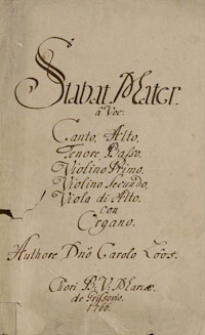 Stabat Mater.
à Voc:
Canto, Alto,
Tenore, Basso.
Violino Primo,
Violino Secundo,
Viola di Alto.
con
Organo.
Authore Dnō Carolo Loos.
Chori B. V. Mariæ
de